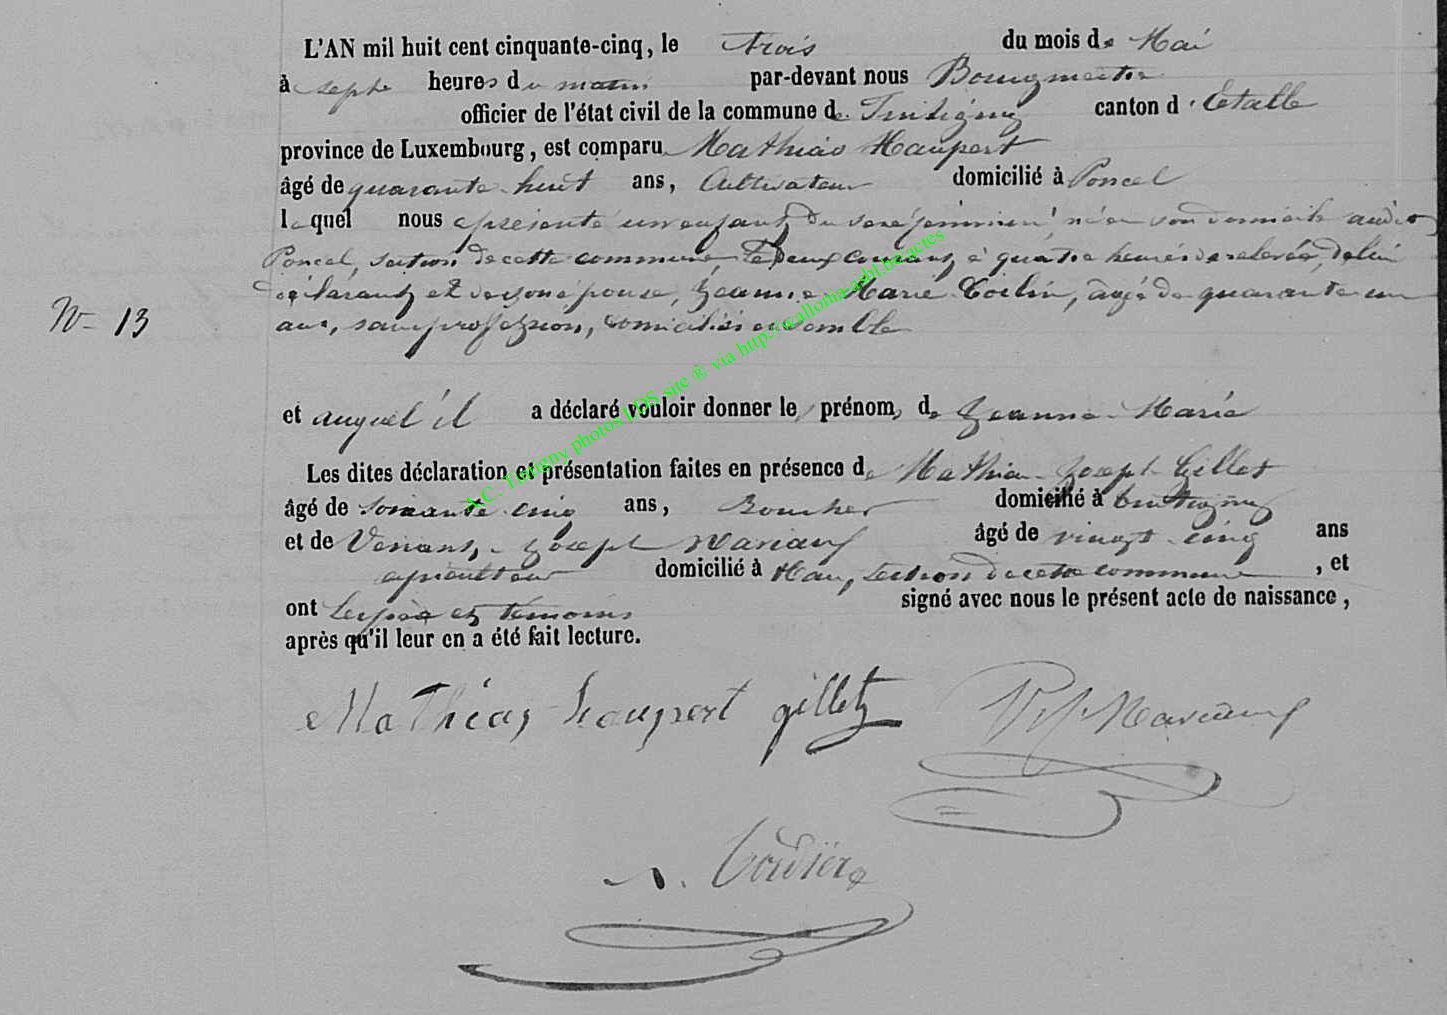 L'AN mil huit cent cinquante-cinq, le trois du mois de Mai
à sept heures du matin par-devant nous Bourgmestre
officier de l'état civil de la commune de Tintigny canton d'Etalle
province de Luxembourg, est comparu Mathias Haupert
âgé de quarante-huit ans, Cultivateur domicilié à Poncel
lequel nous a présenté un enfant du sexe féminin, né en son domicile audit
Poncel, section de cette commune, le deux courant, à quatre heures de relevée, de lui
déclarant et de son épouse, Jeanne-Marie Collin, âgée de quarante-un
ans, sans profession, domiciliés ensemble
N° 13
et auquel il a déclaré vouloir donner le prénom de Jeanne-Marie
Les dites déclaration et présentation faites en présence de Mathieu-Joseph Gillet
âgé de soixante cinq ans, Boucher domicilié à Tintigny
et de Joseph Mariamé âgé de vingt-cinq ans
domicilié à Han, section de cette commune, et
ont les père et témoins signé avec nous le présent acte de naissance,
après qu'il leur en a été fait lecture.
Mathias haupert gillet
A.C. Tintigny photos LDS site ® via http://wallonia-asbl.be/actes